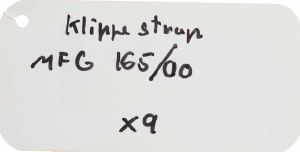 Klippe strap
MFG 165/00
x9